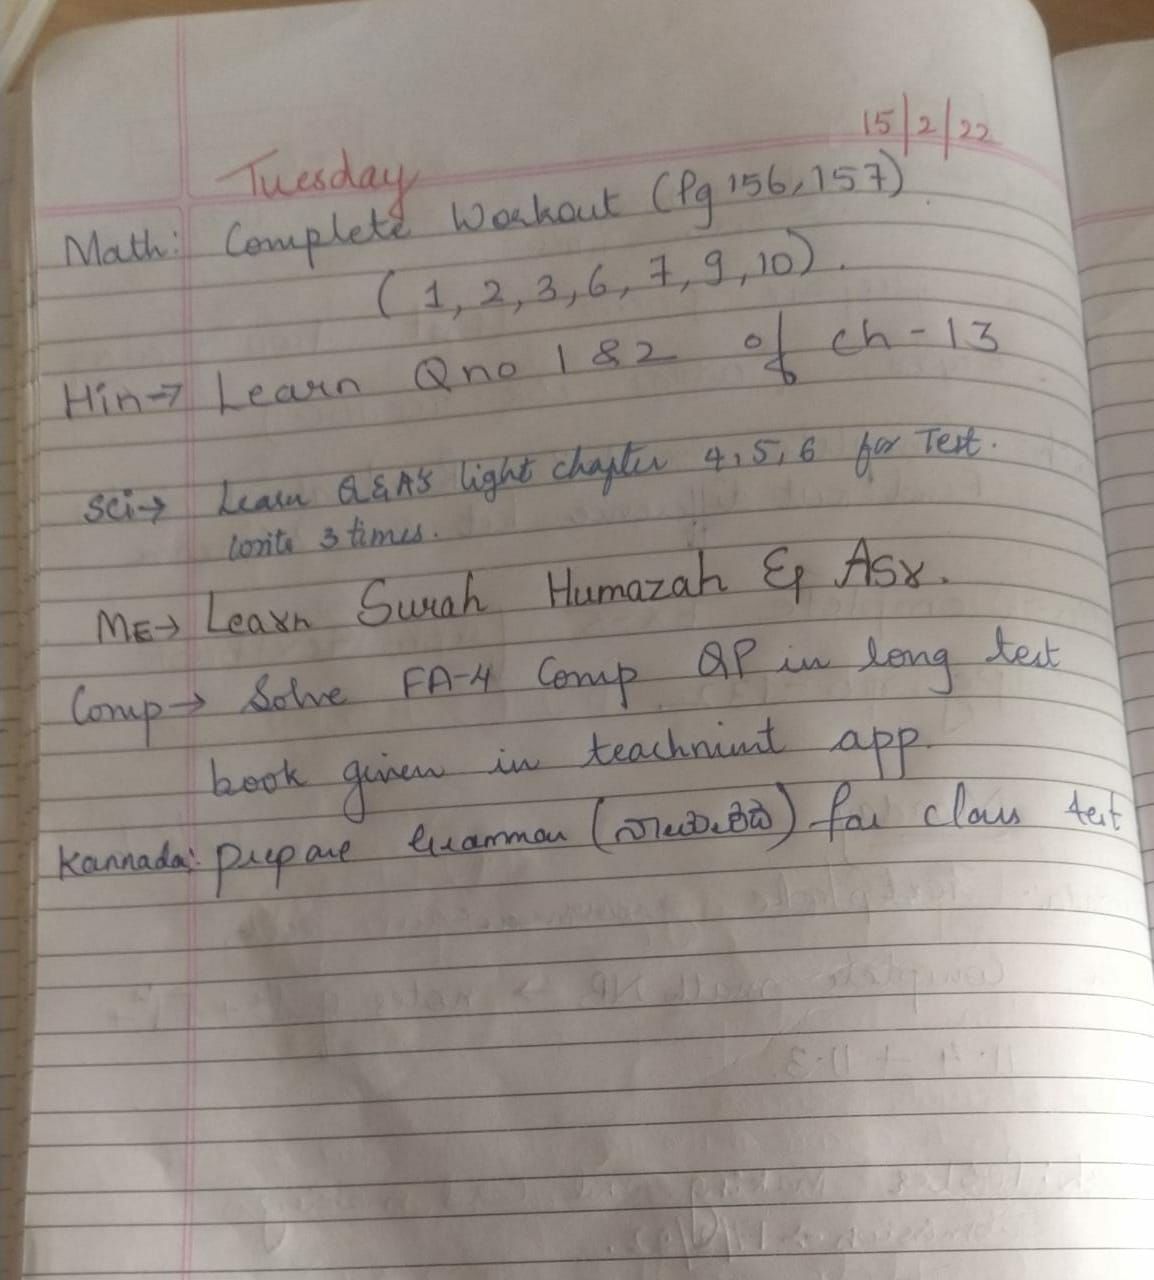 15/2/22
Tuesday
Math: Complete Workout (Pg 156, 157).
(1, 2, 3, 6, 7, 9, 10).
Hin→ Learn Q no 1 & 2 of ch - 13
Sci→ Learn Q & A's light chapter 4, 5, 6 for Test.
write 3 times.
ME→ Learn Surah Humazah & Asr.
Comp→ Solve FA-4 Comp QP in long test
book given in teachmint app.
Kannada: Prepare Grammar ( ) for class test